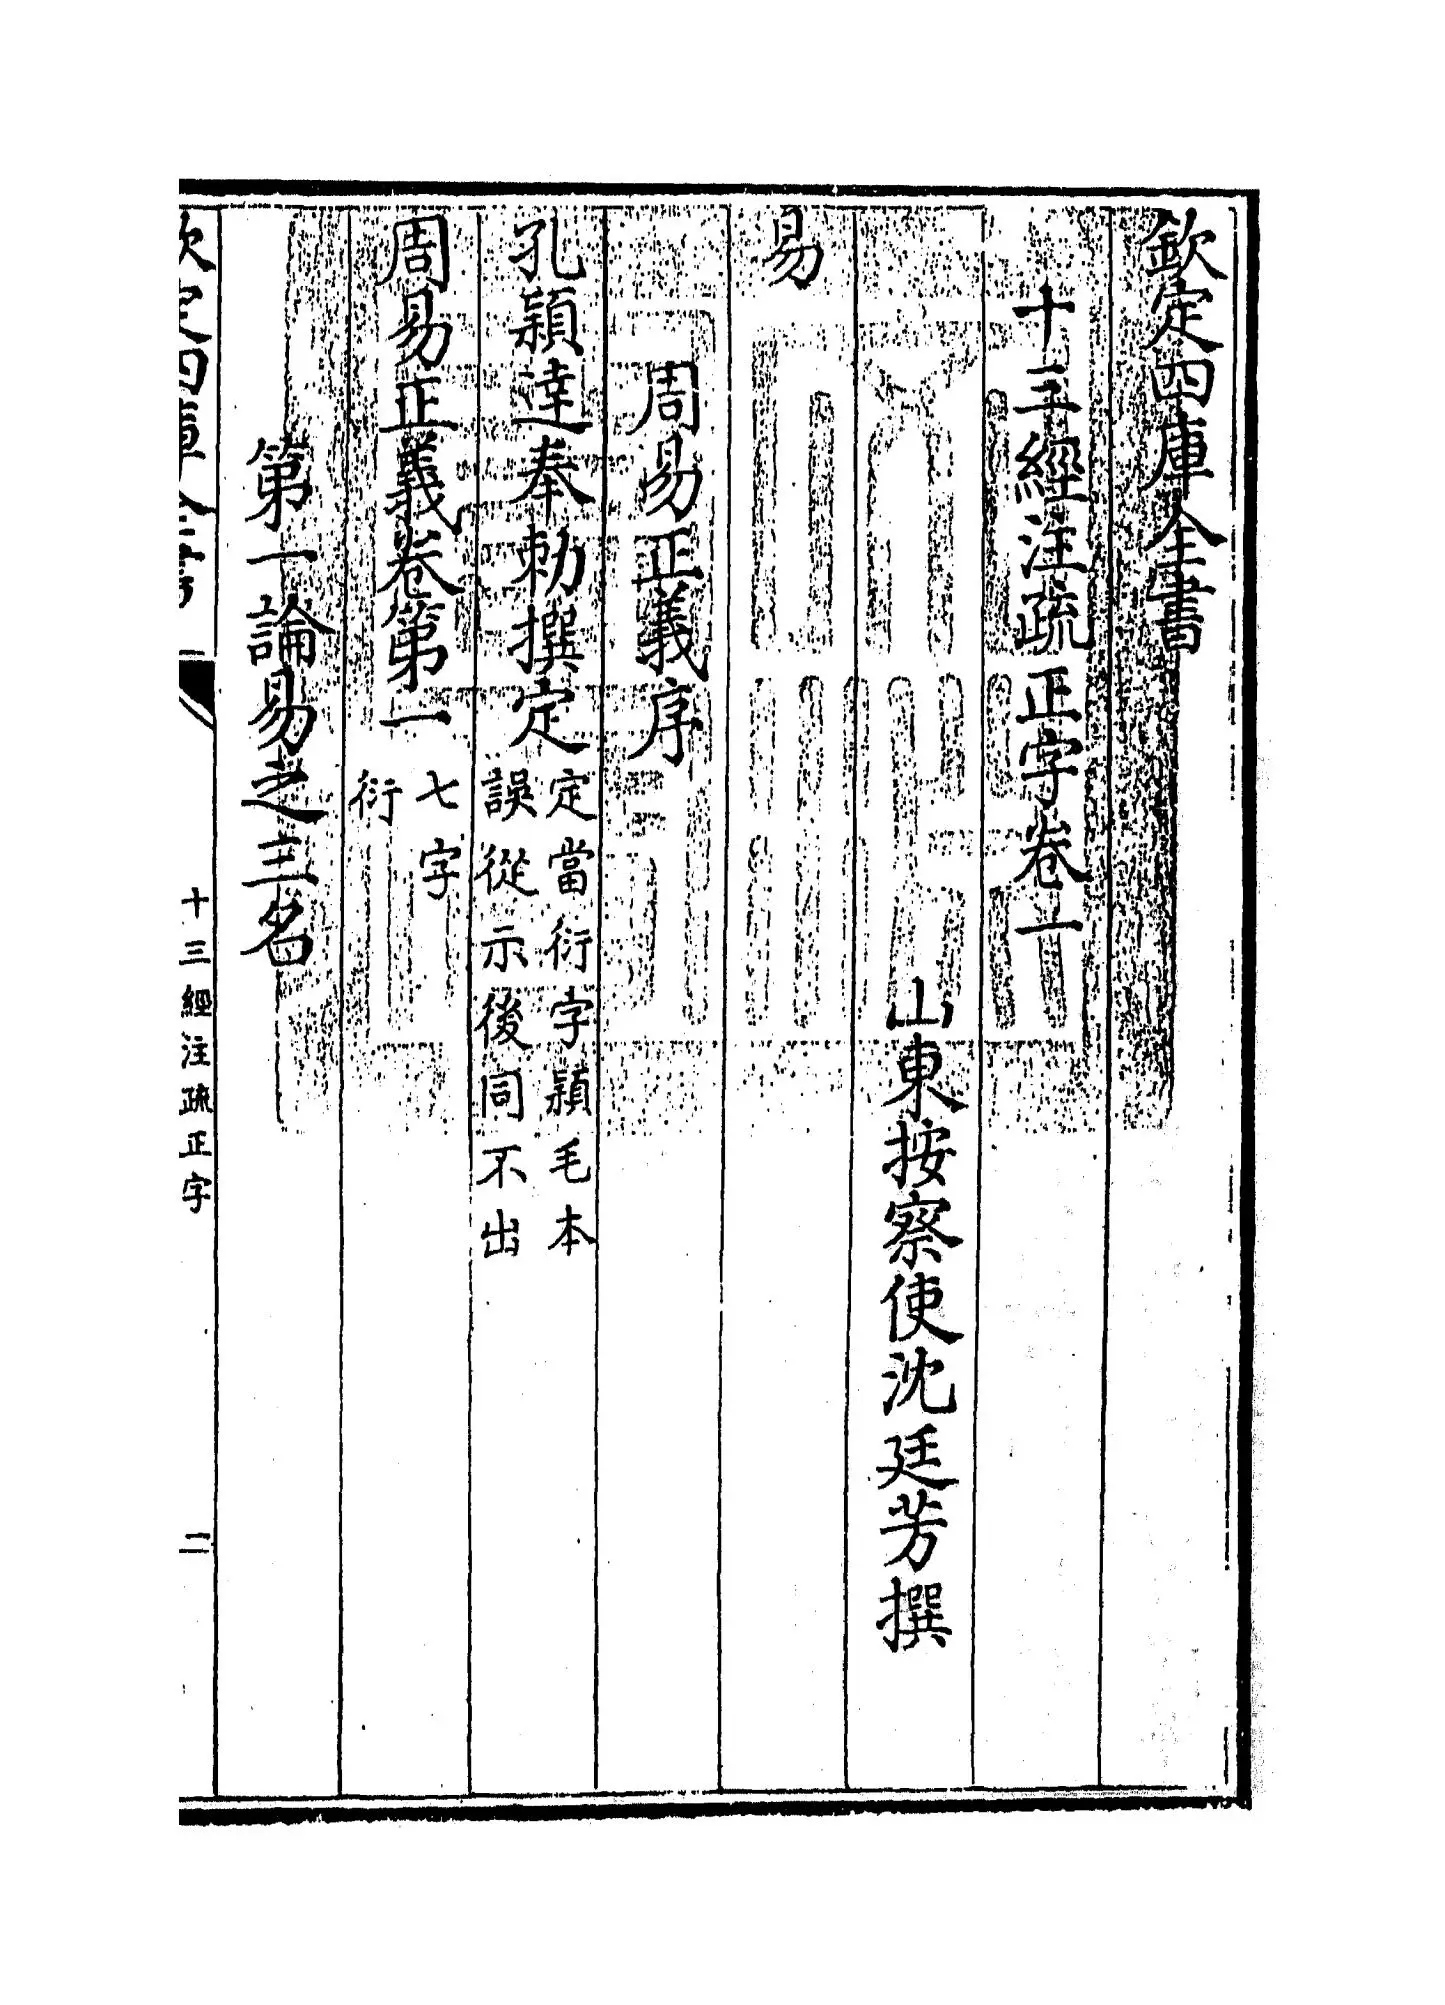 欽定四庫全書
十三經注疏正字卷一
山東按察使沈廷芳撰
易
周易正義序
孔穎達奉勅撰定
定當衍字穎毛本
誤從示後同不出
周易正義卷第一
七字
衍
第一論易之三名
欽定四庫全書
十三經注疏正字
二